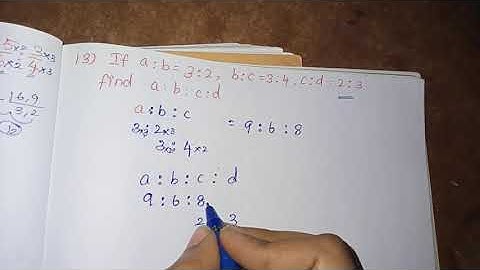 5×2 : 3×3
6×2 : 4×3
16,9
3,2
12
13) If a:b=3:2, b:c=3:4, c:d=2:3
find a:b:c:d
a : b : c
3×3 : 2×3 = 9:6:8
3×2 : 4×2
a : b : c : d
9 : 6 : 8
2 3